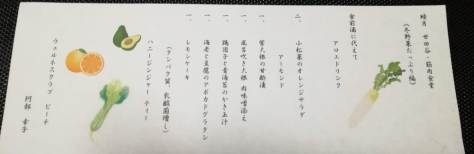 睦月 世田谷・筋肉食堂
(冬野菜たっぷり編)
食前酒に代えて
アロエドリンク
二、
小松菜のオレンジサラダ
アーモンド
一、
紫大根の甘酢漬
一、
風呂吹き大根 肉味噌添え
一、
鶏団子と青海苔のかき玉汁
一、
海老と豆腐のアボカドグラタン
一、
レモンケーキ
(タンパク質、乳酸菌増し)
ハニージンジャーティー
ウェルネスクラブ ピーチ
阿部 幸子